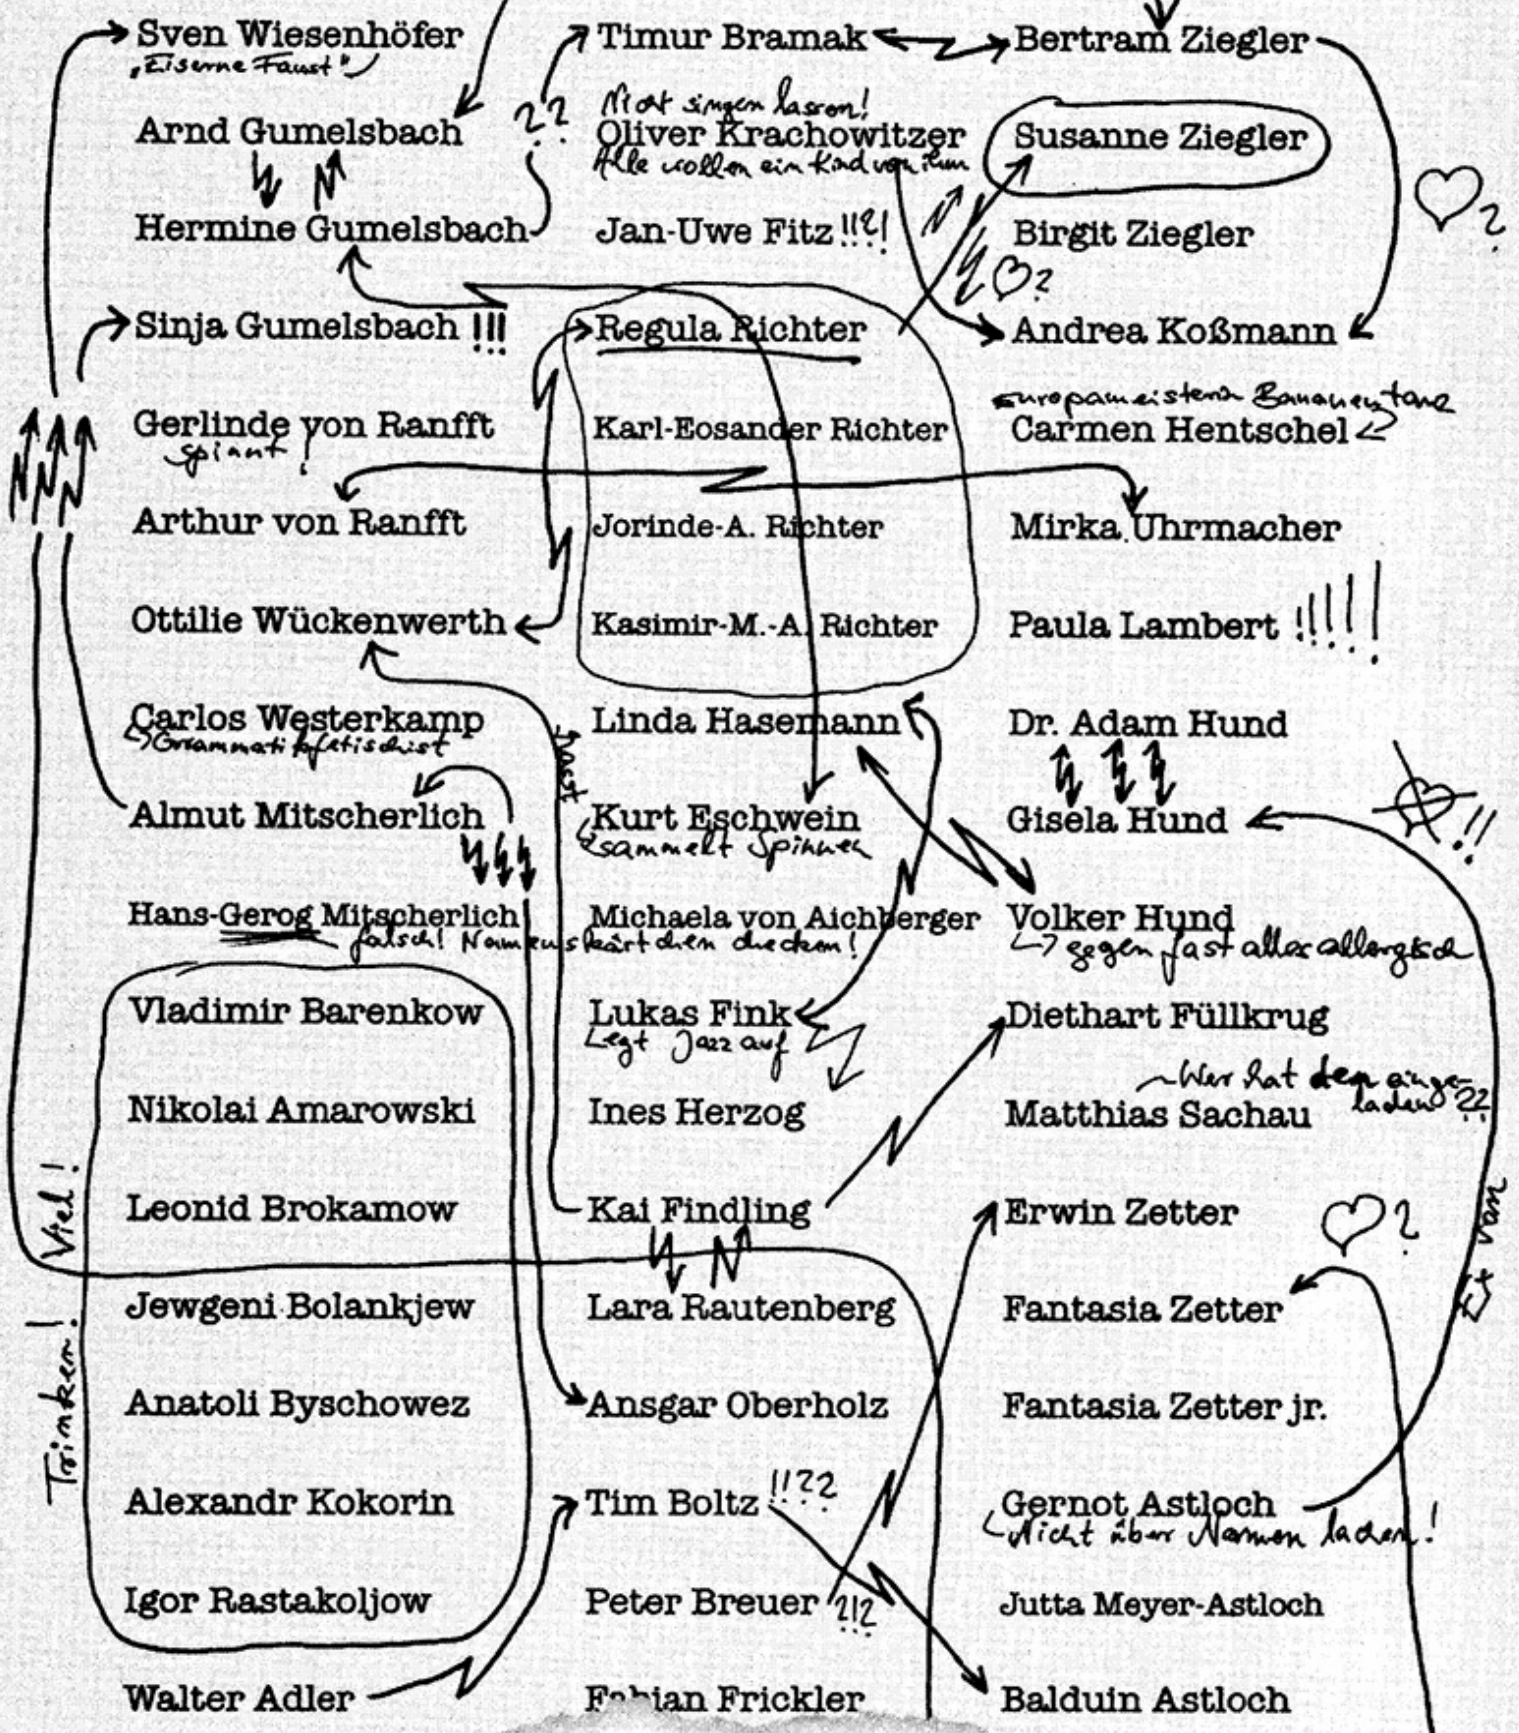 Sven Wiesenhöfer
„Eiserne Faust"
Arnd Gumelsbach
Hermine Gumelsbach
Sinja Gumelsbach !!!
Gerlinde von Ranfft
spinnt!
Arthur von Ranfft
Ottilie Wückenwerth
Carlos Westerkamp
Grammatikfetischist
Almut Mitscherlich
Hans-Gerog Mitscherlich
falsch! Namenskärtchen checken!
Viel!
Trinken!
Vladimir Barenkow
Nikolai Amarowski
Leonid Brokamow
Jewgeni Bolankjew
Anatoli Byschowez
Alexandr Kokorin
Igor Rastakoljow
Walter Adler
??
Timur Bramak
Nicht singen lassen!
Oliver Krachowitzer
Alle wollen ein Kind von ihm
Jan-Uwe Fitz !!?!
Regula Richter
Karl-Eosander Richter
Jorinde-A. Richter
Kasimir-M.-A. Richter
Linda Hasemann
hasst
Kurt Eschwein
sammelt Spinnen
Michaela von Aichberger
Lukas Fink
Legt Jazz auf
Ines Herzog
Kai Findling
Lara Rautenberg
Ansgar Oberholz
Tim Boltz !!??
Peter Breuer ?!?
Fabian Frickler
Bertram Ziegler
Susanne Ziegler
Birgit Ziegler
?
?
Andrea Koßmann
Europameisterin Bananentanz
Carmen Hentschel
Mirka Uhrmacher
Paula Lambert !!!!!
Dr. Adam Hund
Gisela Hund
!!
Volker Hund
gegen fast alles allergisch
Diethart Füllkrug
Wer hat den einge-
laden??
Matthias Sachau
Erwin Zetter
?
Fantasia Zetter
Fantasia Zetter jr.
Gernot Astloch
Nicht über Namen lachen!
Jutta Meyer-Astloch
Balduin Astloch